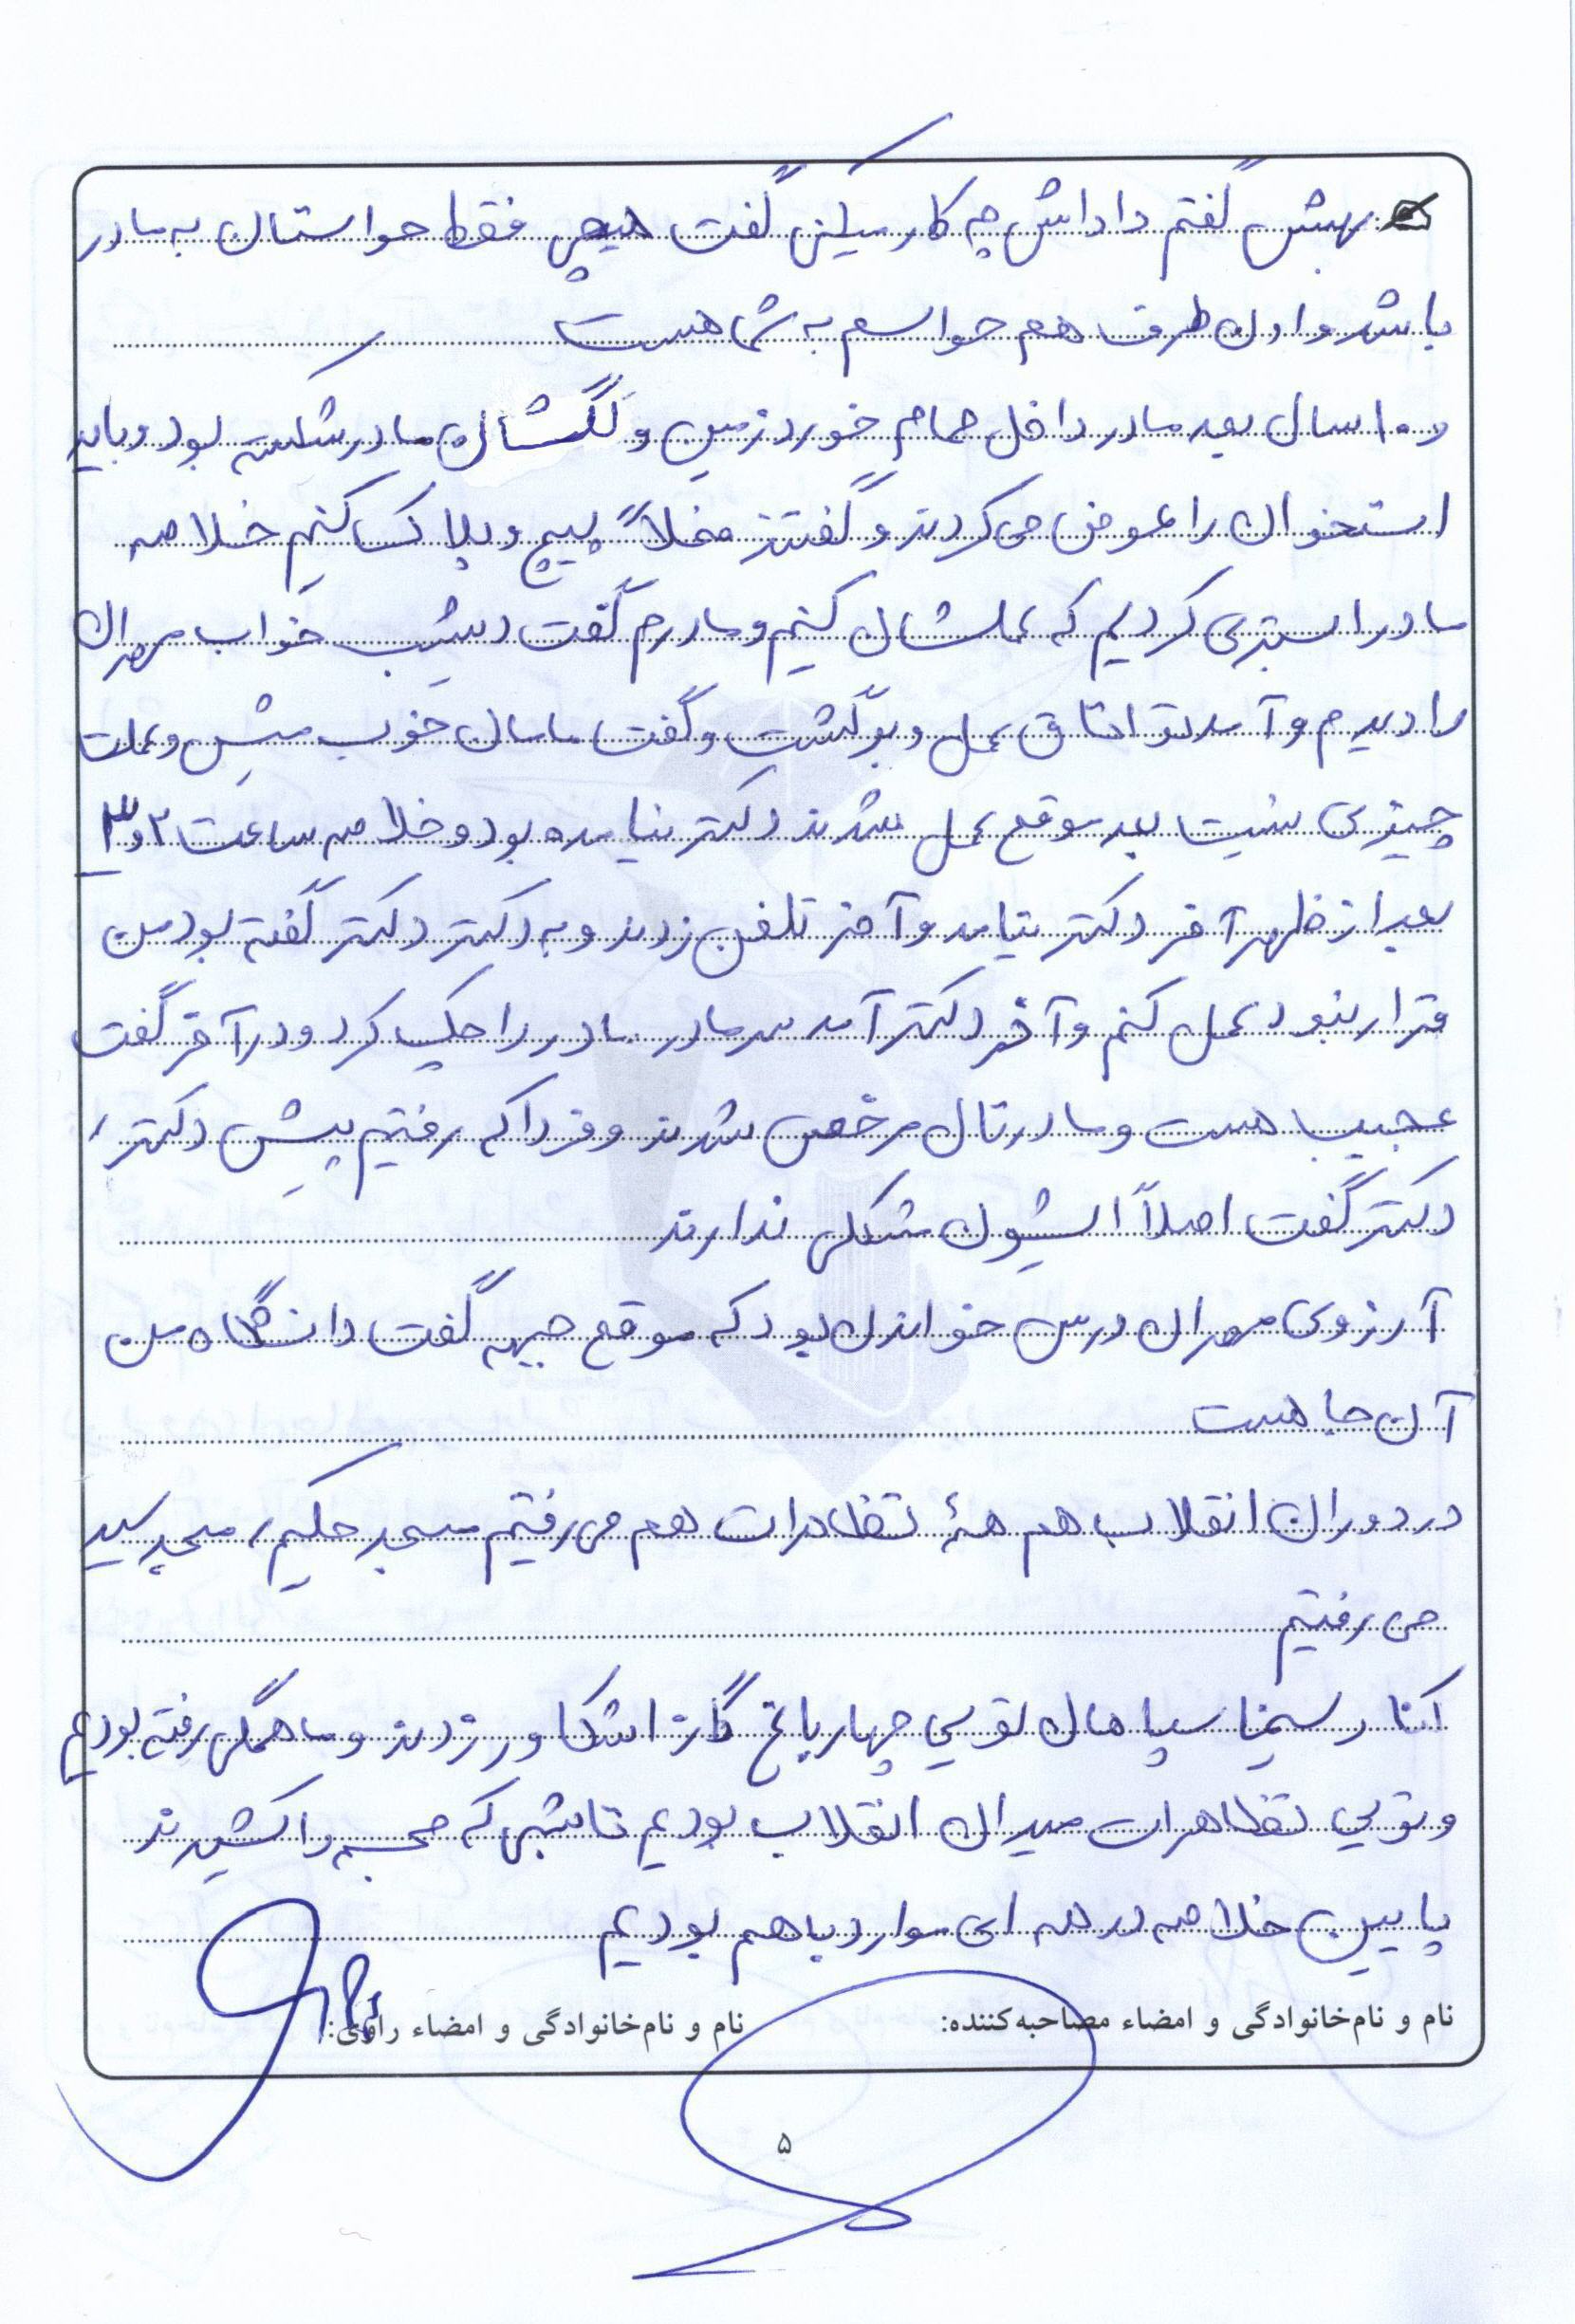 بهش گفتم داداش چه کار میکنی گفت هیچی فقط حواستان به مادر
باشد و اون طرف هم حواسم به شما هست
و ۱۰ سال بعد مادر داخل حمام خورد زمین و لگنشان مادر شکسته بود و باید
استخوان را عوض می کردند و گفتند مثلاً پیچ و پلاک کنیم خلاصه
مادر را بستری کردیم که عملشان کنیم و مادرم گفت دیشب خواب مهران
را دیدم و آمد تو اتاق عمل و برگشت و گفت مامان خوب میشی و عملت
چیزی نیست بعد موقع عمل شدند دکتر نیامده بود و خلاصه ساعت ۲ و ۳
بعد از ظهر آخر دکتر نیامد و آخر تلفن زدند و به دکتر دکتر گفته بود من
قرار نبود عمل کنم و آخر دکتر آمد سر مادر مادر را چک کرد و در آخر گفت
عجیب هست و مادرتان مرخص شدند و فردا که رفتیم پیش دکتر،
دکتر گفت اصلاً ایشون مشکلی ندارند
آرزوی مهران درس خواندن بود که موقع جبهه گفت دانشگاه من
آن جا هست
در دوران انقلاب هم همهٔ تظاهرات هم می رفتیم مسجد حکیم، مسجد سید
می رفتیم
کنار سینما سپاهان تویی چهارباغ گاز اشک آور زدند و ما همگی رفته بودیم
و تویی تظاهرات میدان انقلاب بودیم تا شبی که مجسمه را کشیدند
پایین خلاصه در همه ای موارد باهم بودیم
نام و نام‌خانوادگی و امضاء مصاحبه‌کننده: نام و نام‌خانوادگی و امضاء راوی:
۵